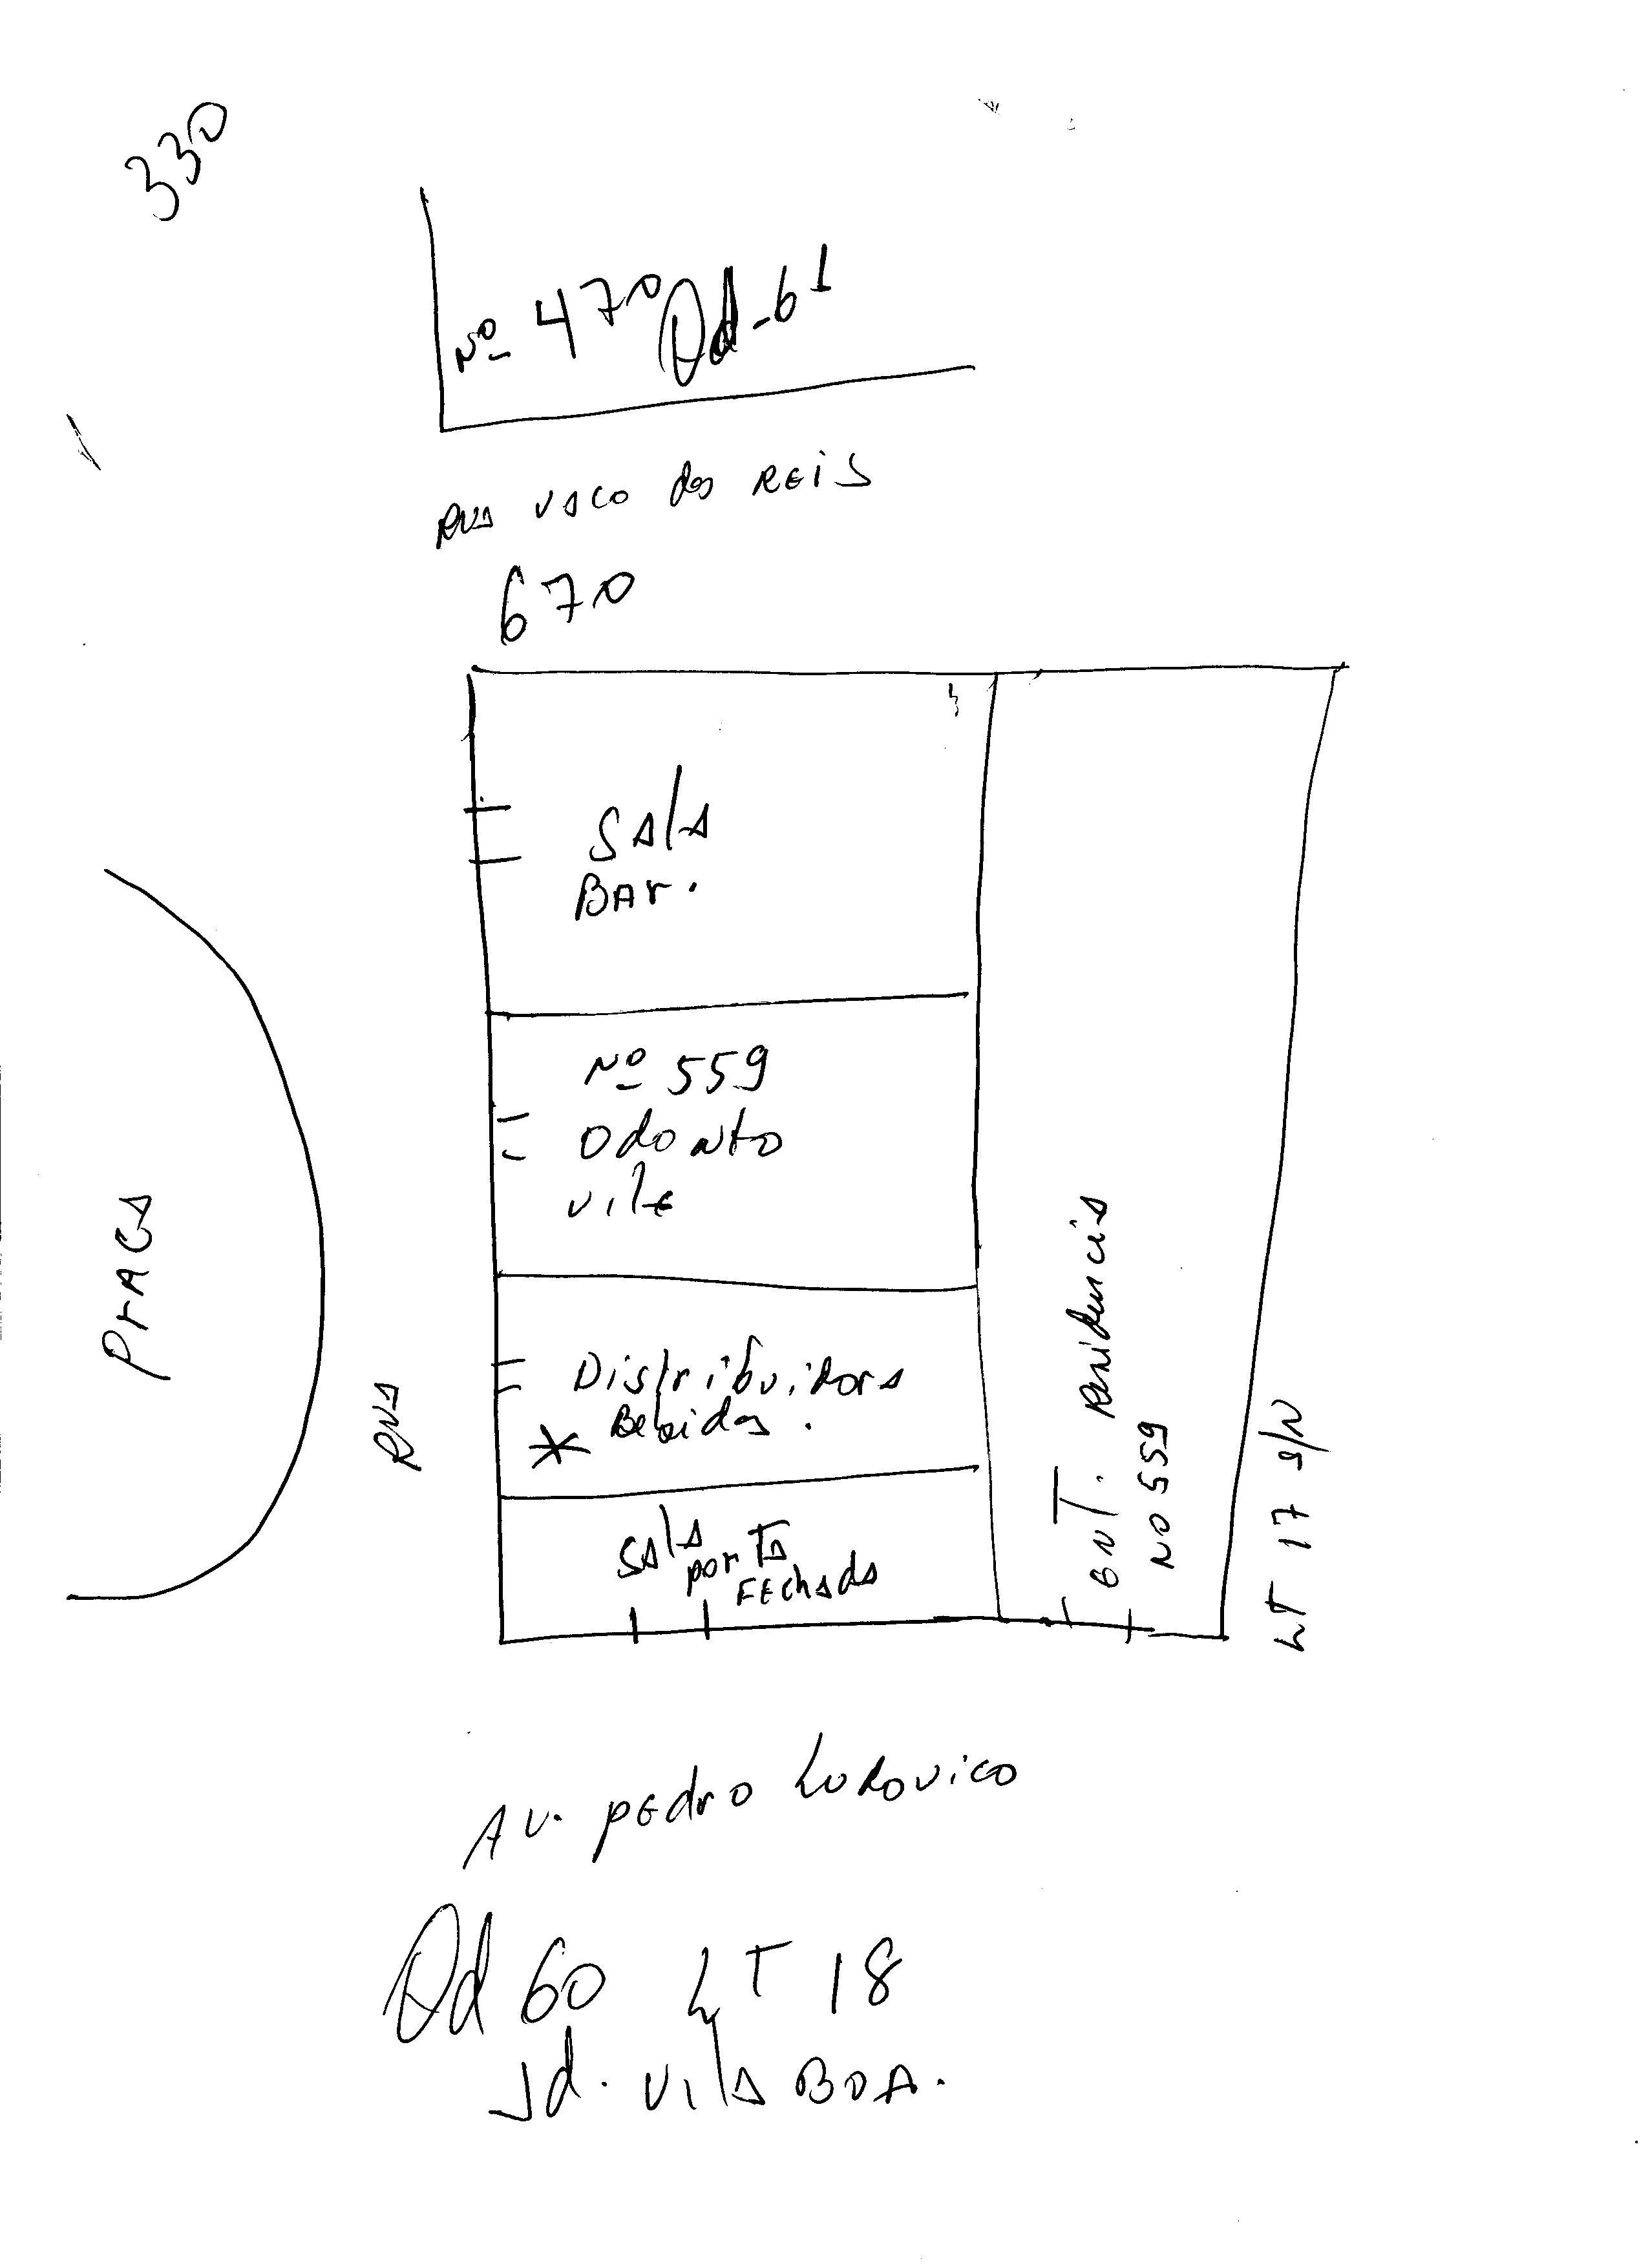 330
Nº 470 Qd-61
RUA VACO dos REIS
670
SALA
BAr.
Nº 559
Odonto
vile
Distribuidora
Bebidas.
*
SALA
porTA
FEchada
PrAÇA
RUA
ENT. Residencia
NO 559
LT 17 S/N
AV. pEdro Ludovico
Qd 60 LT 18
Jd. VilA BOA.